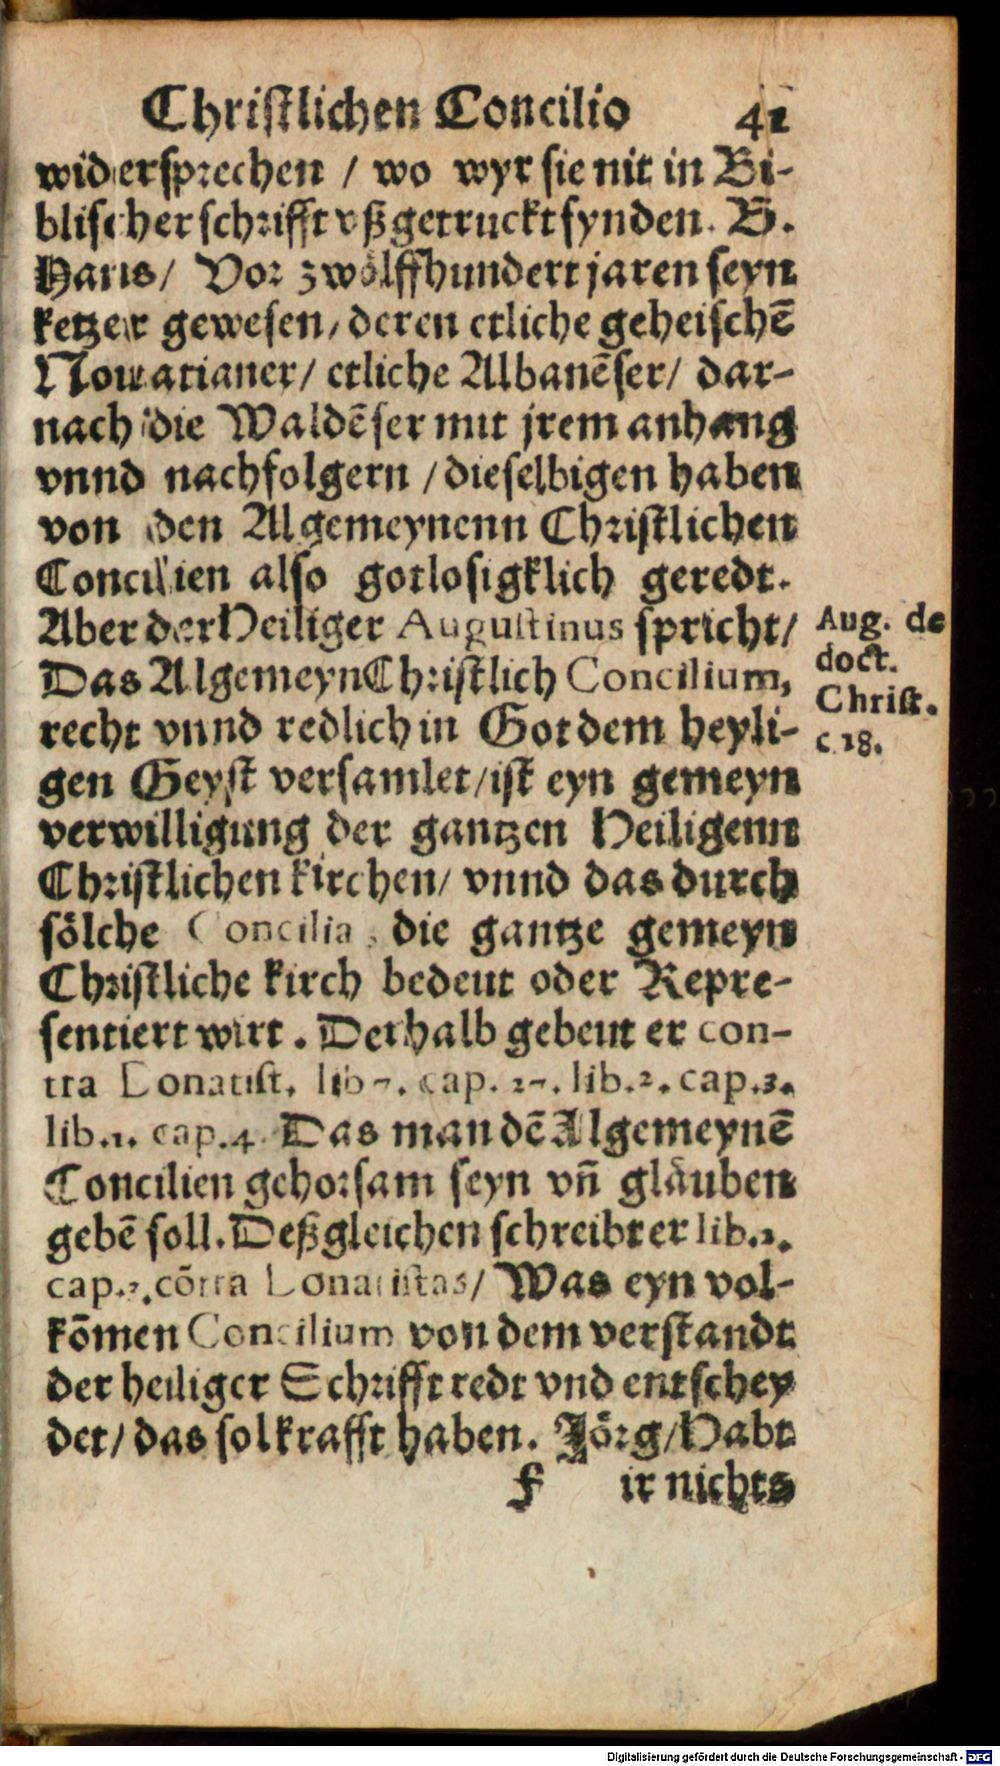 Christlichen Concilio 41
widersprechen / wo wyr sie nit in Bi-
blischer schrifft vß getruckt synden. B.
Hans / Vor zwölffhundert jaren seyn
ketzer gewesen / deren etliche geheischē
Nouatianer / etliche Albanēser / dar-
nach die Waldēser mit jrem anhang
vnnd nachfolgern / dieselbigen haben
von den Algemeynenn Christlichen
Concilien also gotlosigklich geredt.
Aber der Heiliger Augustinus spricht /
Das Algemeyn Christlich Concilium,
recht vnnd redlich in Got dem heyli-
gen Geyst versamlet / ist eyn gemeyn
verwilligung der gantzen Heiligenn
Christlichen kirchen / vnnd das durch
sölche Concilia, die gantze gemeyn
Christliche kirch bedeut oder Repre-
sentiert wirt. Derhalb gebeut er con-
tra Donatist. lib 7. cap. 27. lib. 2. cap. 3.
lib. 1. cap. 4. Das man dē Algemeynē
Concilien gehorsam seyn vñ gläuben
gebē soll. Deßgleichen schreibt er lib.
cap. cōtra Donatistas / Was eyn vol-
kōmen Concilium von dem verstandt
der heiliger Schrifft redt vnd entschey
det / das sol krafft haben. Jörg / Habt
f ir nichts
Aug. de
doct.
Christ.
c. 18.
Digitalisierung gefördert durch die Deutsche Forschungsgemeinschaft - DFG